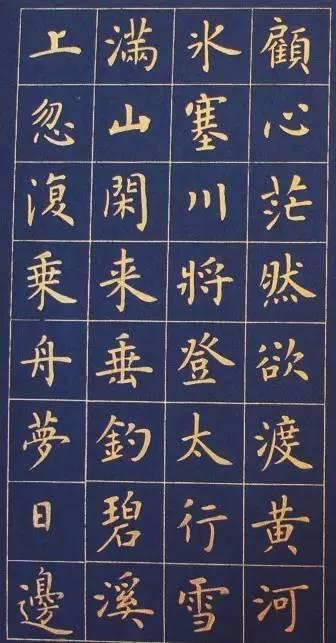 顧心茫然欲渡黄河
氷塞川將登太行雪
滿山閑来垂釣碧溪
上忽復乘舟夢日邊